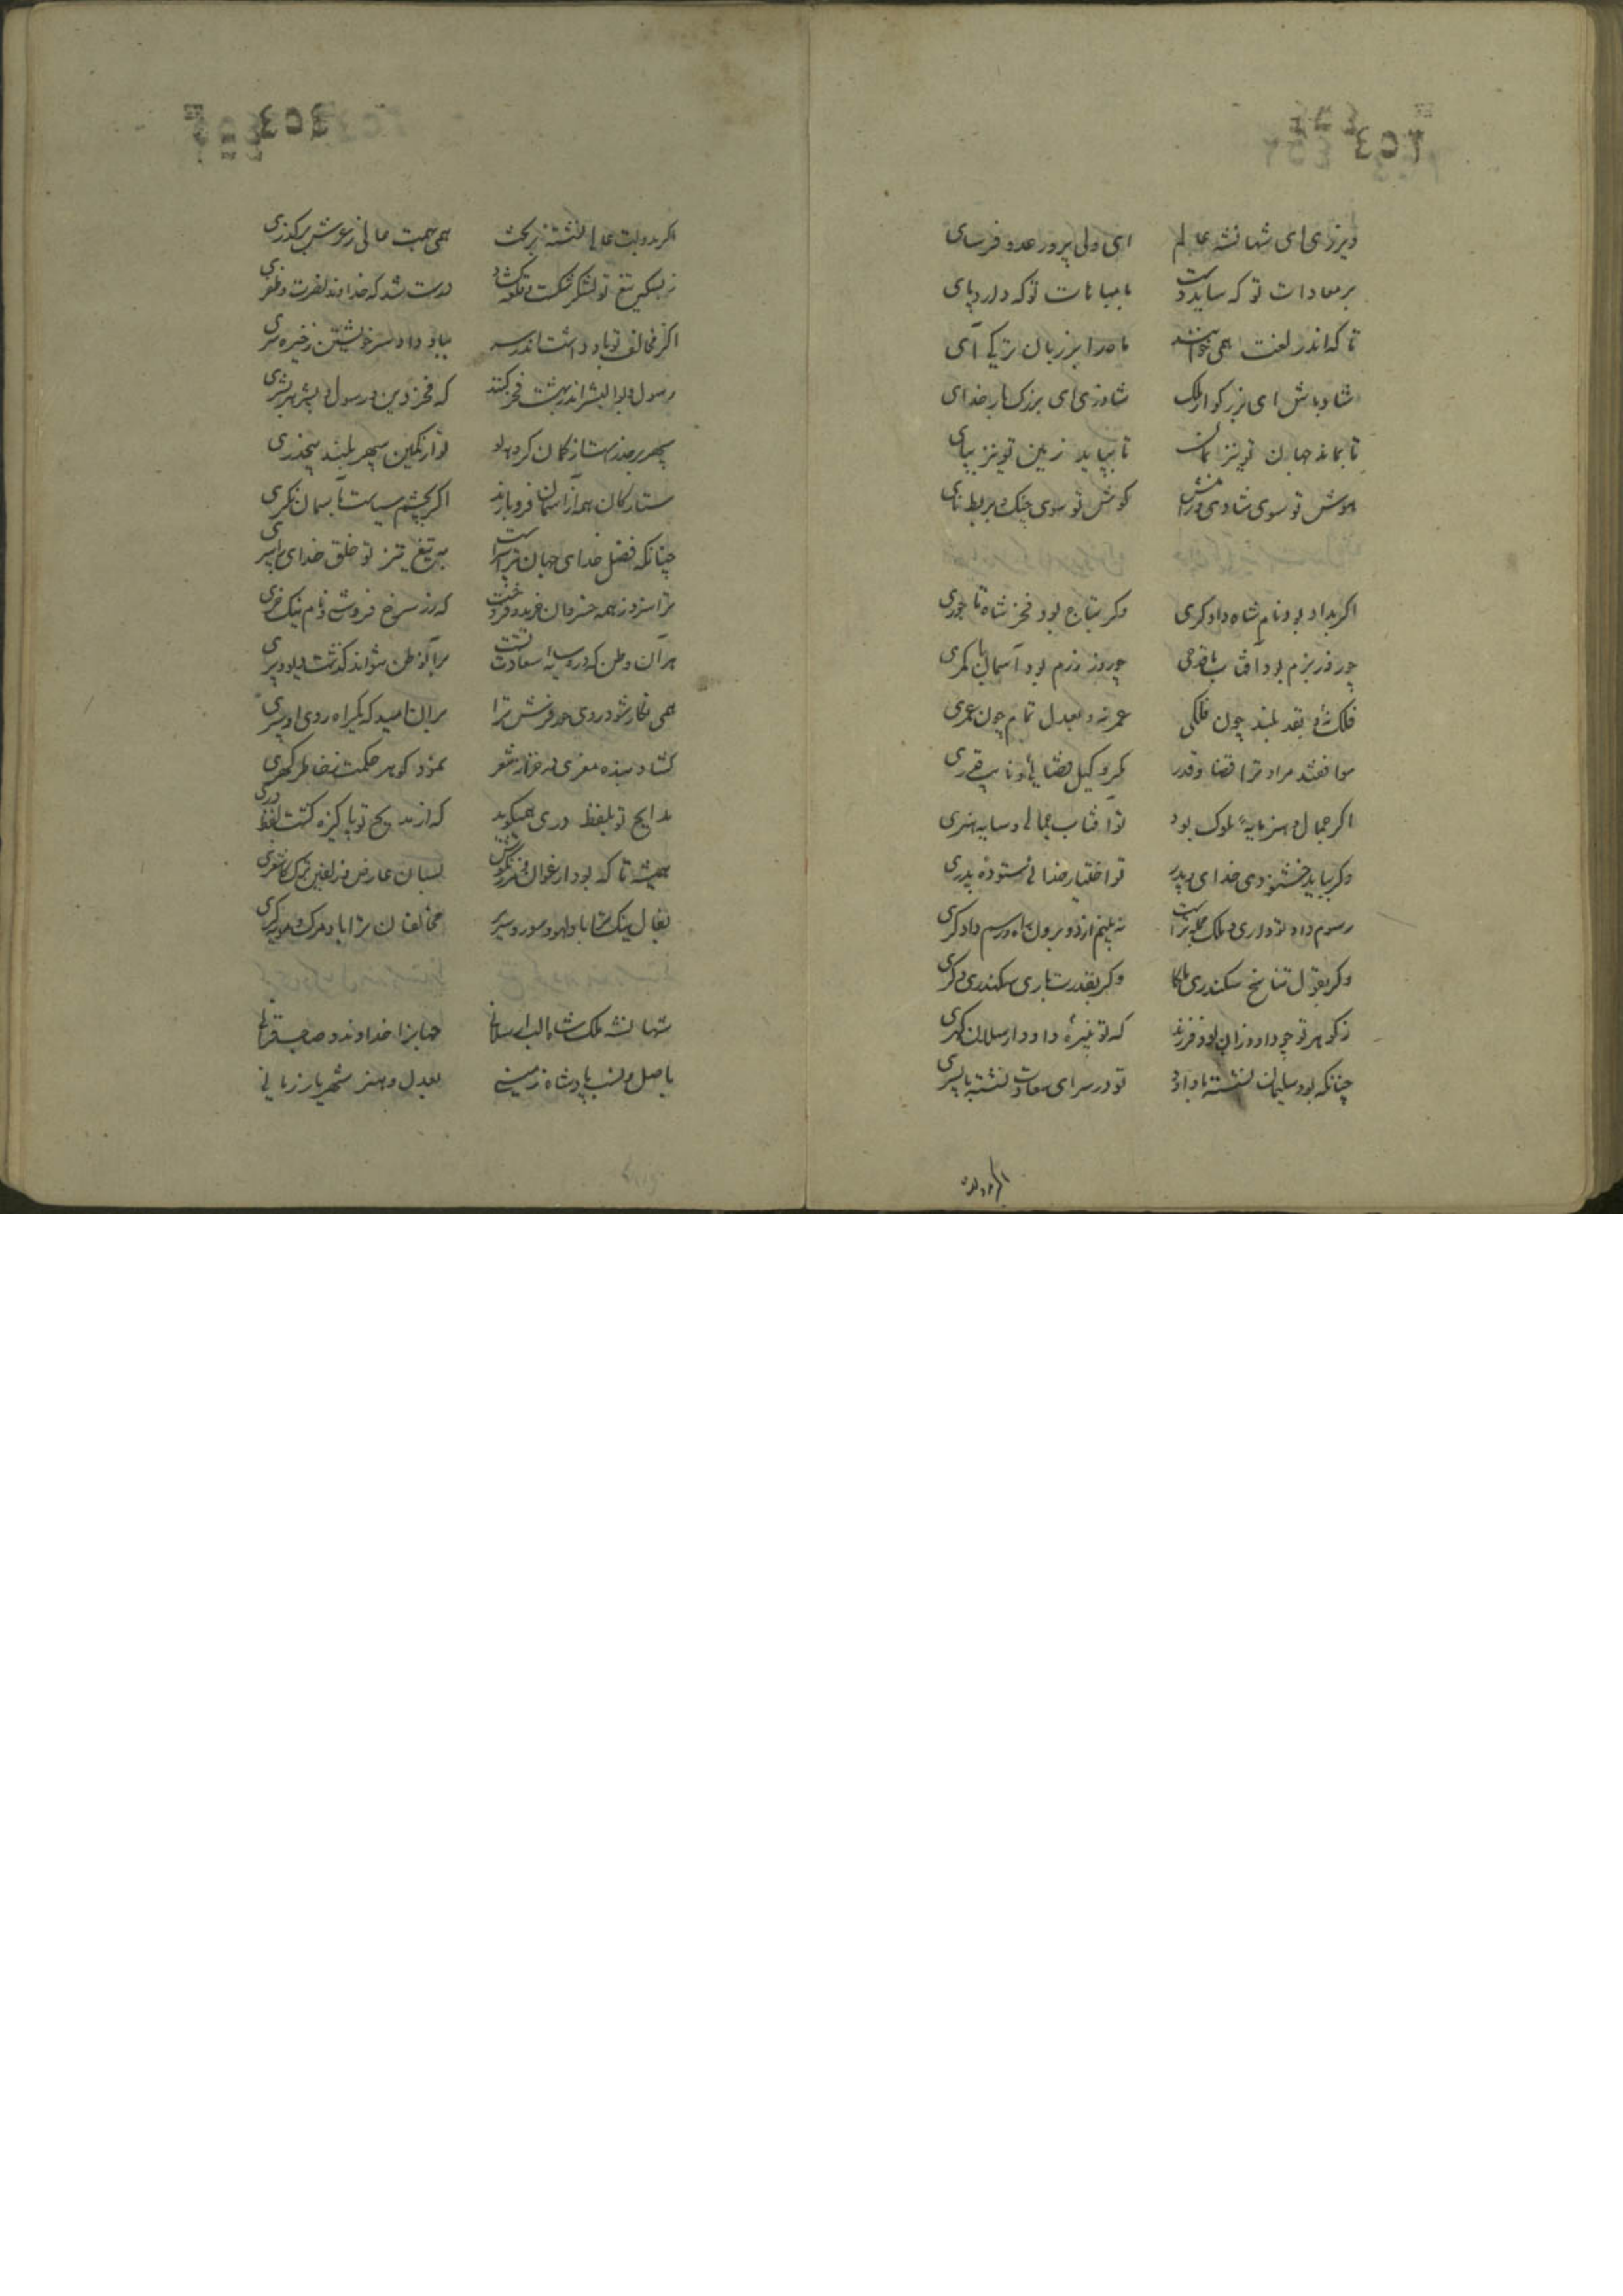 ٤٥٢
دیرزی ای شهانشه عالم ای ولی پرور عدو فرسای
بر معادات تو که ساید دست با مباهات تو که دارد پای
تا که اندر لغت همی خوانند ماه را بر زبان ترکی آی
شاد باش ای بزرکوار ملک شادزی ای بزرک بار خدای
تا بماند جهان تو نیز بمان تا بپاید زمین تو نیز بپای
هوش تو سوی شادی و رامش کوش تو سوی چنک و بربط و نای
اکر بداد بود نام شاه دادکری وکر بتاج بود فخر شاه تاجوری
چو روز بزم بود آفتاب با قدحی چو روز رزم بود آسمان با کمری
فلک نه بقدر بلند چون فلکی عمر نه و بعدل تمام چون عمری
موافقند مراد ترا قضا و قدر مکر وکیل قضائی و نایب قدری
اکر جمال و هنر مایهٔ ملوک بود تو آفتاب جمالی و سایه هنری
وکر بباید خشنودی خدای و پدر تو اختیار خدائی ستوده پدری
رسوم داد تو داری و ملک جمله تراست نه بینم از تو برون شاه و رسم دادکری
وکر بقول تناسخ سکندری ملکا وکر بقدرت باری سکندری دکری
ز کوهر تو چو داود زان بود فرزند که تو نبیرهٔ داود ارسلان کهری
چنانکه بود سلیمان نشسته با داود تو در سرای سعادت نشسته با پسری
اکر بدولت
٤٥٣
اکر بدولت عالی نشسته بر تخت همی بهمت عالی ز عرش برکذری
ز بسکه تیغ تو لشکر شکست و قلعه کشاد درست شد که خداوند نصرت و ظفری
اکر مخالف تو باد داشت اندر سر بباد داد سر خویشتن ز خیره سری
رسول و بوالبشر اندر بهشت فخر کنند که فخر دین رسول و بشر بهر بشری
سپهر بر حذر است از کمان کروهه تو تو از کمین سپهر بلند بیحذری
ستارکان همه از آسمان فرو بارند اکر بچشم سیاست بآسمان نکری
چنانکه فضل خدای جهان تراست بتیغ تیز تو خلق خدای را سپری
ترا سزد ز همه خسروان خرید و فروخت که زر سرخ فروشی و نام نیک خری
هر آن وطن که درو سایه سعادت تست بر آن وطن نتواند کذشت دیو و پری
همی نکار شود روی حور فرش ترا بر آن امید که یکراه روی او سپری
کشاد بنده معزی در خزاین شعر نمود کوهر حکمت ز خاطر کهری
مدایح تو بلفظ دری همیکوید که از مدیح تو پاکیزه کشت لفظ دری
همیشه تا که بود ارغوان و مرزنکوش بسان عارض و زلفین ترک کاشغری
بفال نیک ترا باد لهو و سور و سریر مخالفان ترا باد مرک و مویه کری
شهانشه ملک شاه الب ارسلانی جهانرا خداوند و صاحب قرانی
باصل و نسب پادشاه زمینی بعدل و هنر شهریار زمانی